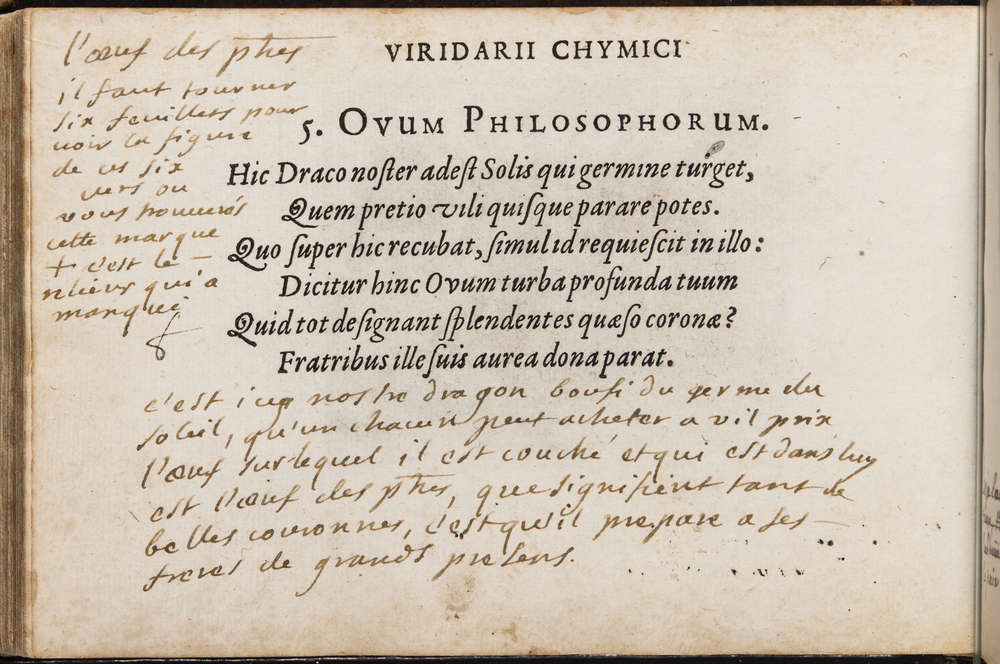 l'œuf des phes
il faut tourner
six feuillets pour
voir la figure
de ces six
vers ou
vous trouverés
cette marque
+ c'est le –
relieur qui a
marqué
VIRIDARII CHYMICI
5. OVUM PHILOSOPHORUM.
Hic Draco noſter adeſt Solis qui germine turget,
Quem pretio vili quiſque parare potes.
Quo ſuper hic recubat, ſimul id requieſcit in illo:
Dicitur hinc Ovum turba profunda tuum
Quid tot deſignant ſplendentes quæſo coronæ?
Fratribus ille ſuis aurea dona parat.
c'est icy nostre dragon boufi du germe du
soleil, qu'un chacun peut acheter a vil prix
l'œuf sur lequel il est couché et qui est dans luy
est l'œuf des phes, que signifient tant de
belles couronnes, c'est qu'il prepare a ses –
freres de grands presens.